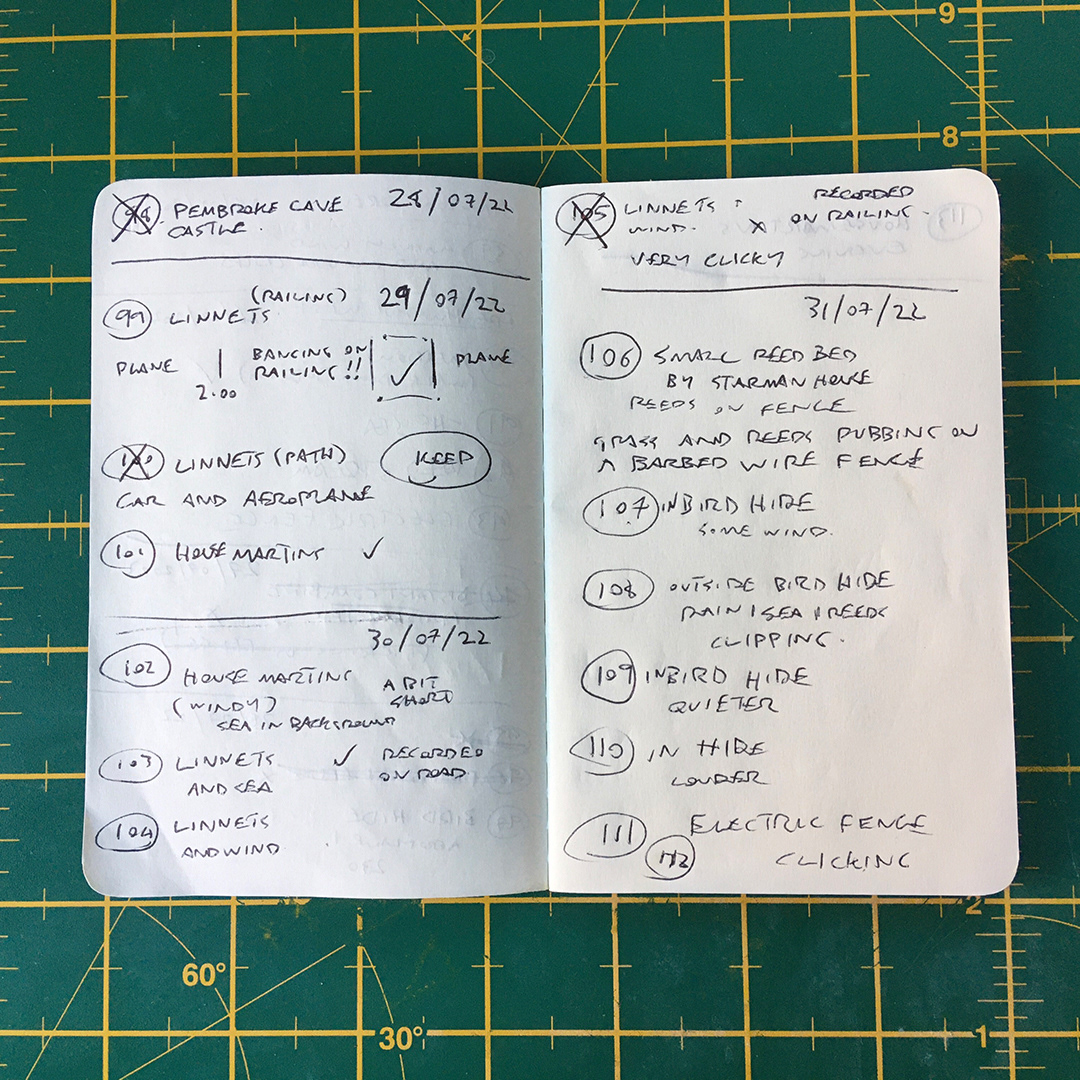 98 PEMBROKE CAVE 28/07/22
CASTLE.
(RAILING) 29/07/22
99 LINNETS
PLANE | BANGING ON RAILING!! | ✓ | PLANE
2.00
100 LINNETS (PATH) KEEP
CAR AND AEROPLANE
101 HOUSE MARTINS ✓
30/07/22
102 HOUSE MARTINS A BIT SHORT
(WINDY)
SEA IN BACKGROUND
103 LINNETS ✓ RECORDED
AND SEA ON ROAD
104 LINNETS
AND WIND
105 LINNETS RECORDED
WIND. X ON RAILING.
VERY CLICKY
31/07/22
106 SMALL REED BED
BY STARMAN HOUSE
REEDS ON FENCE
GRASS AND REEDS RUBBING ON
A BARBED WIRE FENCE
107 IN BIRD HIDE
SOME WIND.
108 OUTSIDE BIRD HIDE
RAIN / SEA / REEDS
CLIPPING.
109 IN BIRD HIDE
QUIETER
110 IN HIDE
LOUDER
111 ELECTRIC FENCE
112 CLICKING
9
8
2
1
60°
30°